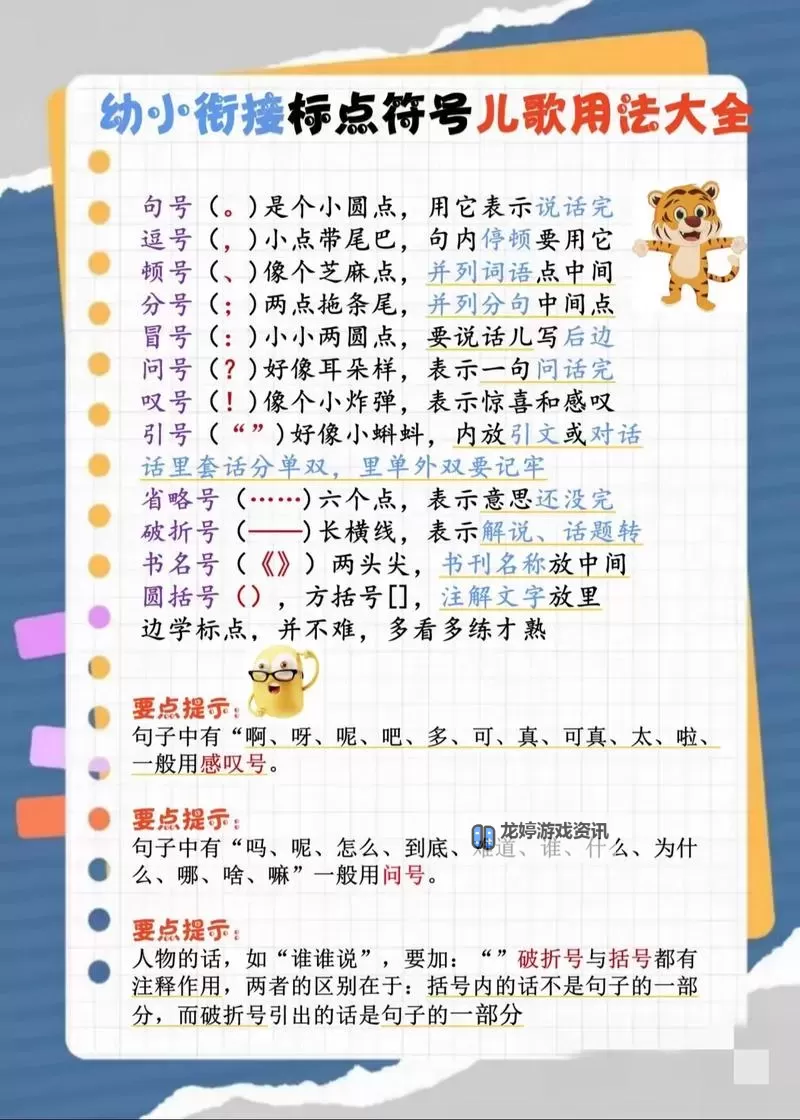 幼小衔接标点符号儿歌用法大全
句号（。)是个小圆点，用它表示说话完
逗号（，)小点带尾巴，句内停顿要用它
顿号（、)像个芝麻点，并列词语点中间
分号（；)两点拖条尾，并列分句中间点
冒号（：)小小两圆点，要说话儿写后边
问号（？)好像耳朵样，表示一句问话完
叹号（！)像个小炸弹，表示惊喜和感叹
引号（“”)好像小蝌蚪，内放引文或对话
话里套话分单双，里单外双要记牢
省略号（……)六个点，表示意思还没完
破折号（——)长横线，表示解说、话题转
书名号（《》）两头尖，书刊名称放中间
圆括号（），方括号[]，注解文字放里
边学标点，并不难，多看多练才熟
要点提示：
句子中有“啊、呀、呢、吧、多、可、真、可真、太、啦、
一般用感叹号。
要点提示：
句子中有“吗、呢、怎么、到底、难道、谁、什么、为什
么、哪、啥、嘛”一般用问号。
龙婷游戏资讯
要点提示：
人物的话，如“谁谁说”，要加：“”破折号与括号都有
注释作用，两者的区别在于：括号内的话不是句子的一部
分，而破折号引出的话是句子的一部分